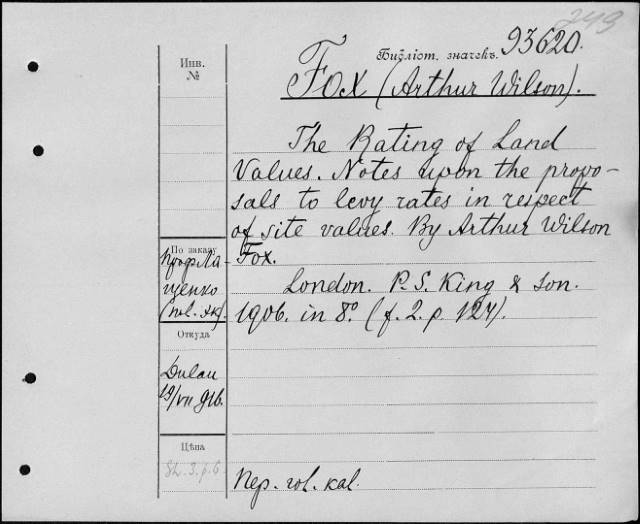 249
Библіот. значекъ. 93620.
Инв.
№
Fox (Arthur Wilson).
The Rating of Land
Values. Notes upon the propo-
sals to levy rates in respect
of site values. By Arthur Wilson
Fox.
London. P. S. King & son.
1906. in 8º. (f. 2. p. 127).
По заказу
Проф. Ла-
щенко
(пол. эк)
Откуда
Dulau
19/VII 916.
Цѣна
Sh. 3. p. 6.
Пер. vol. kal.